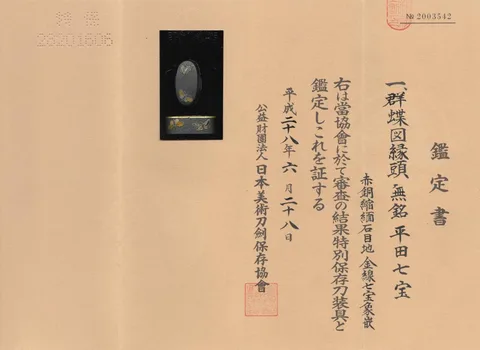 № 2003542
鑑定書
一、群蝶図縁頭 無銘 平田七宝
赤銅縮緬石目地 金線七宝象嵌
右は當協會に於て審査の結果特別保存刀装具と
鑑定しこれを証する
平成二十八年六月二十八日
公益財團法人 日本美術刀劍保存協會
28201606